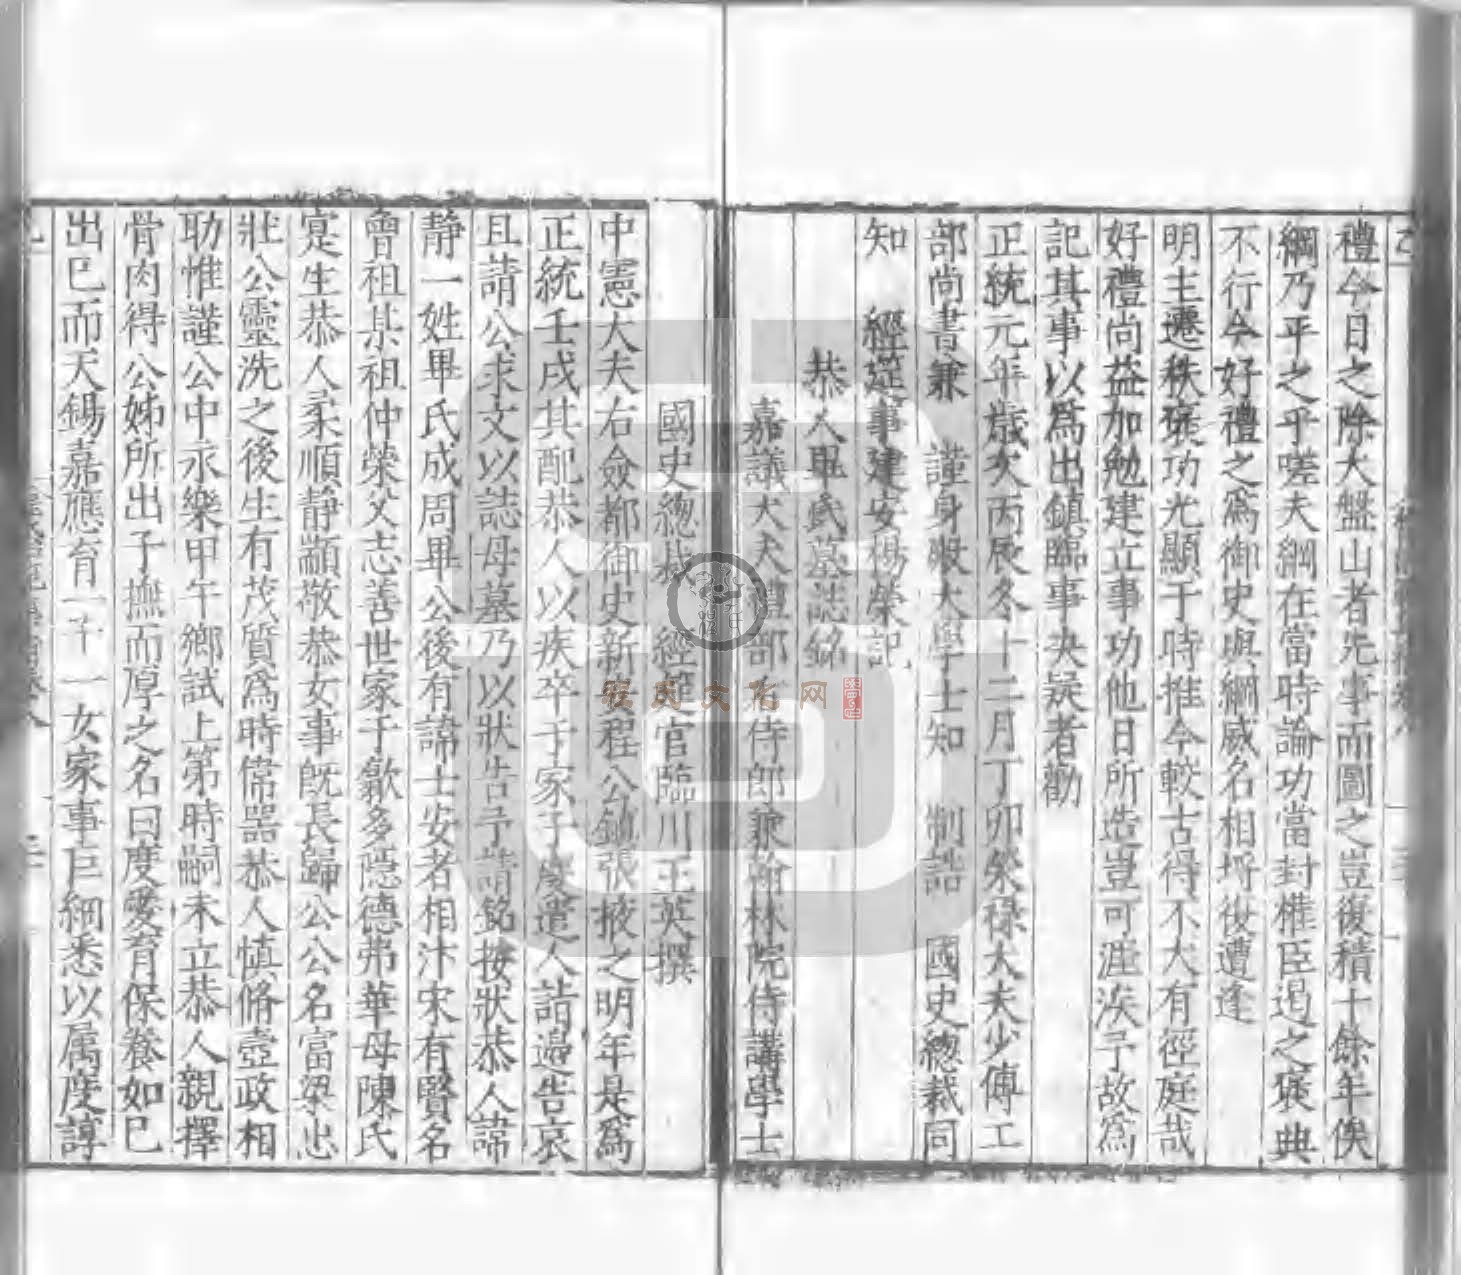 禮今日之除大盤山者先事而圖之豈復積十餘年俟
綱乃平之乎嗟夫綱在當時論功當封權臣遏之褒典
不行今好禮之爲御史與綱威名相埒後遭逢
明主遷秩褒功光顯于時推今較古得不大有徑庭哉
好禮尚益加勉建立事功他日所造豈可涯涘予故爲
記其事以爲出鎮臨事决疑者勸
正統元年歲次丙辰冬十二月丁卯榮祿大夫少傅工
部尚書兼 謹身殿大學士知 制誥 國史總裁同
知 經筵事建安楊榮記
恭人畢氏墓誌銘
嘉議大夫禮部左侍郎兼翰林院侍講學士
國史總裁 經筵官臨川王英撰
中憲大夫右僉都御史新安程公鎮張掖之明年是爲
正統壬戌其配恭人以疾卒于家子度遣人詣邊告哀
且請公求文以誌母墓乃以狀告予請銘按狀恭人諱
静一姓畢氏成周畢公後有諱士安者相汴宋有賢名
曾祖某祖仲榮父志善世家于歙多隱德弗華母陳氏
寔生恭人柔順静顓敬恭女事旣長歸公公名富梁忠
壯公靈洗之後生有茂質爲時偉器恭人慎脩壼政相
助惟謹公中永樂甲午鄉試上第時嗣未立恭人親擇
骨肉得公姊所出子撫而厚之名曰度愛育保養如已
出已而天錫嘉應育一子一女家事巨細悉以属度諄
程氏文化网